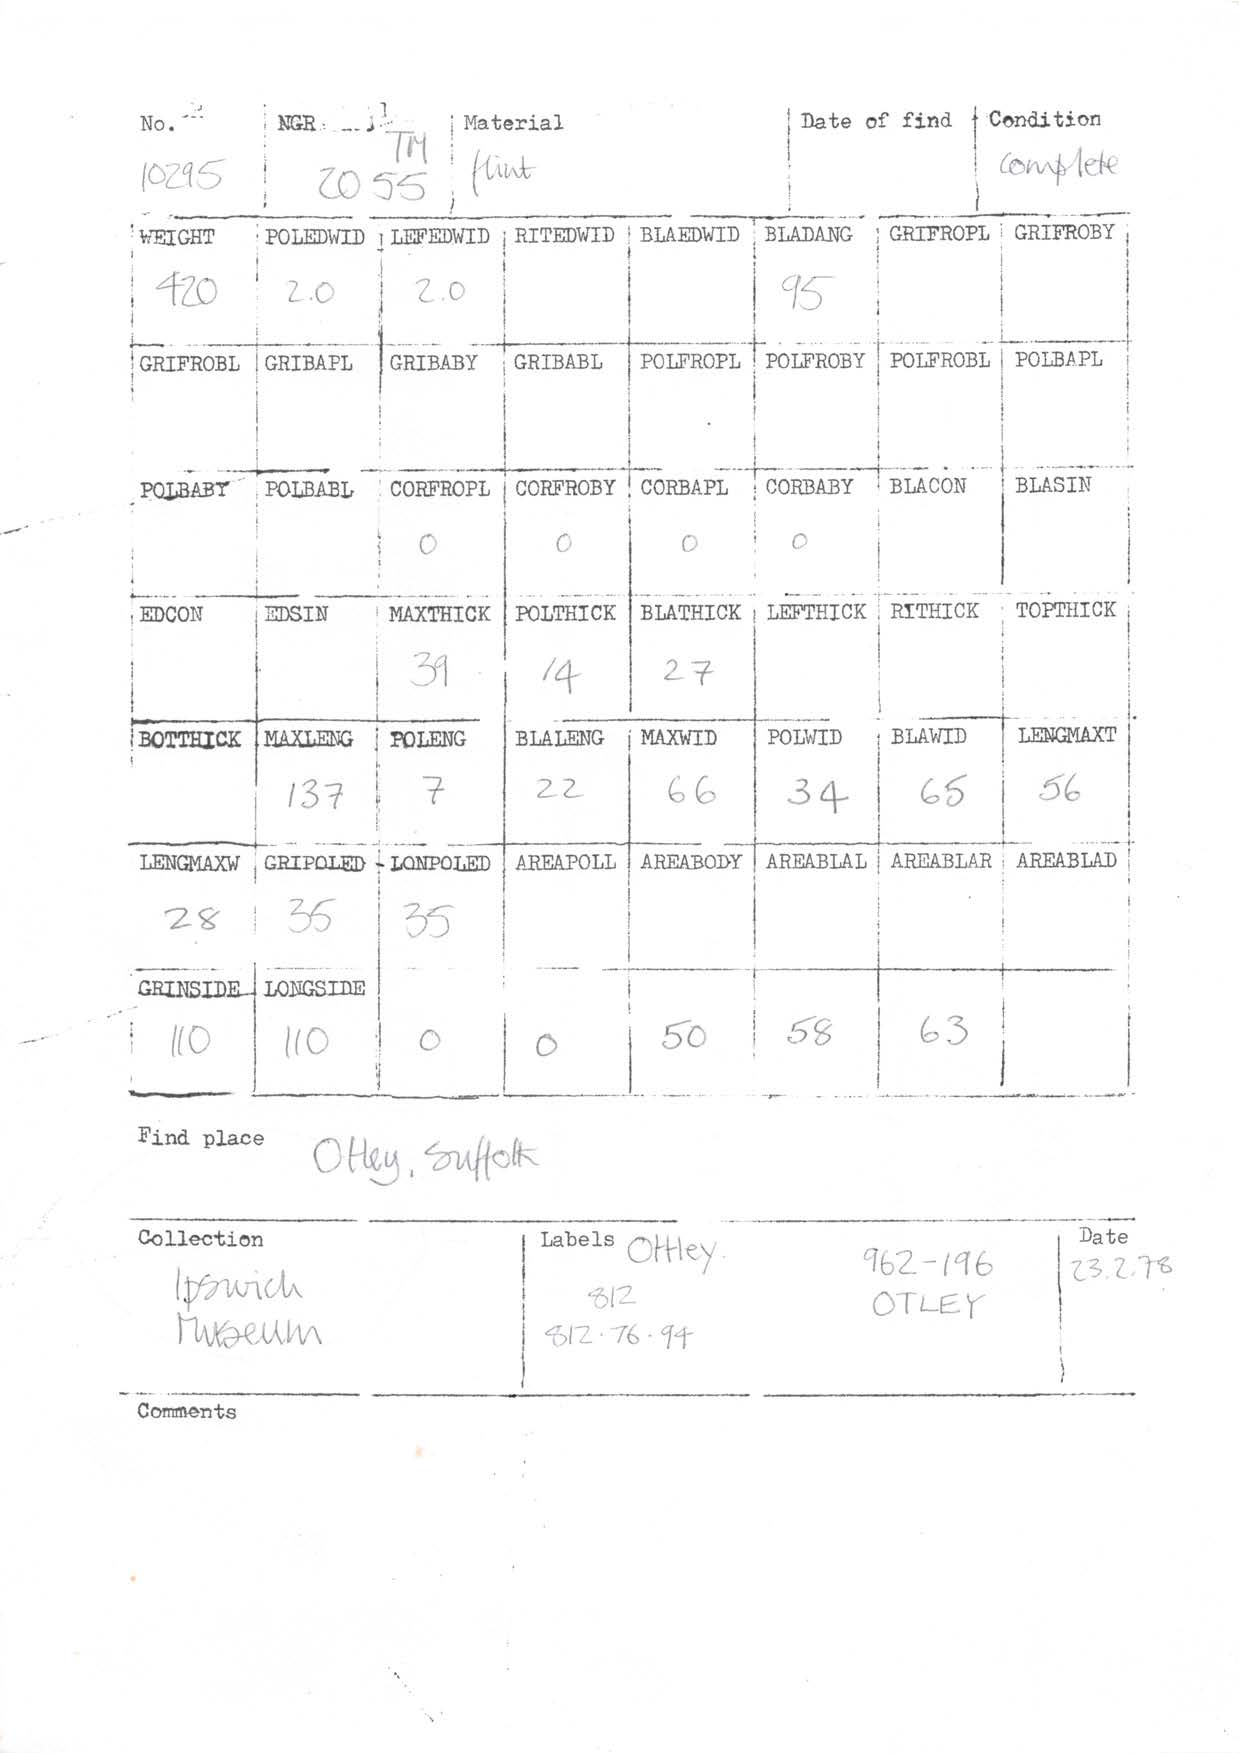 No. NGR Material Date of find Condition
10295 TM 2055 flint complete
WEIGHT POLEDWID LEFEDWID RITEDWID BLAEDWID BLADANG GRIFROPL GRIFROBY
420 2.0 2.0 95
GRIFROBL GRIBAPL GRIBABY GRIBABL POLFROPL POLFROBY POLFROBL POLBAPL
POLBABY POLBABL CORFROPL CORFROBY CORBAPL CORBABY BLACON BLASIN
0 0 0 0
EDCON EDSIN MAXTHICK POLTHICK BLATHICK LEFTHICK RITHICK TOPTHICK
39 14 27
BOTTHICK MAXLENG POLENG BLALENG MAXWID POLWID BLAWID LENGMAXT
137 7 22 66 34 65 56
LENGMAXW GRIPOLED LONPOLED AREAPOLL AREABODY AREABLAL AREABLAR AREABLAD
28 35 35
GRINSIDE LONGSIDE
110 110 0 0 50 58 63
Find place Otley, Suffolk
Collection Labels Ottley. 962-196 Date
Ipswich 812 OTLEY 23.2.78
Museum 812·76·94
Comments